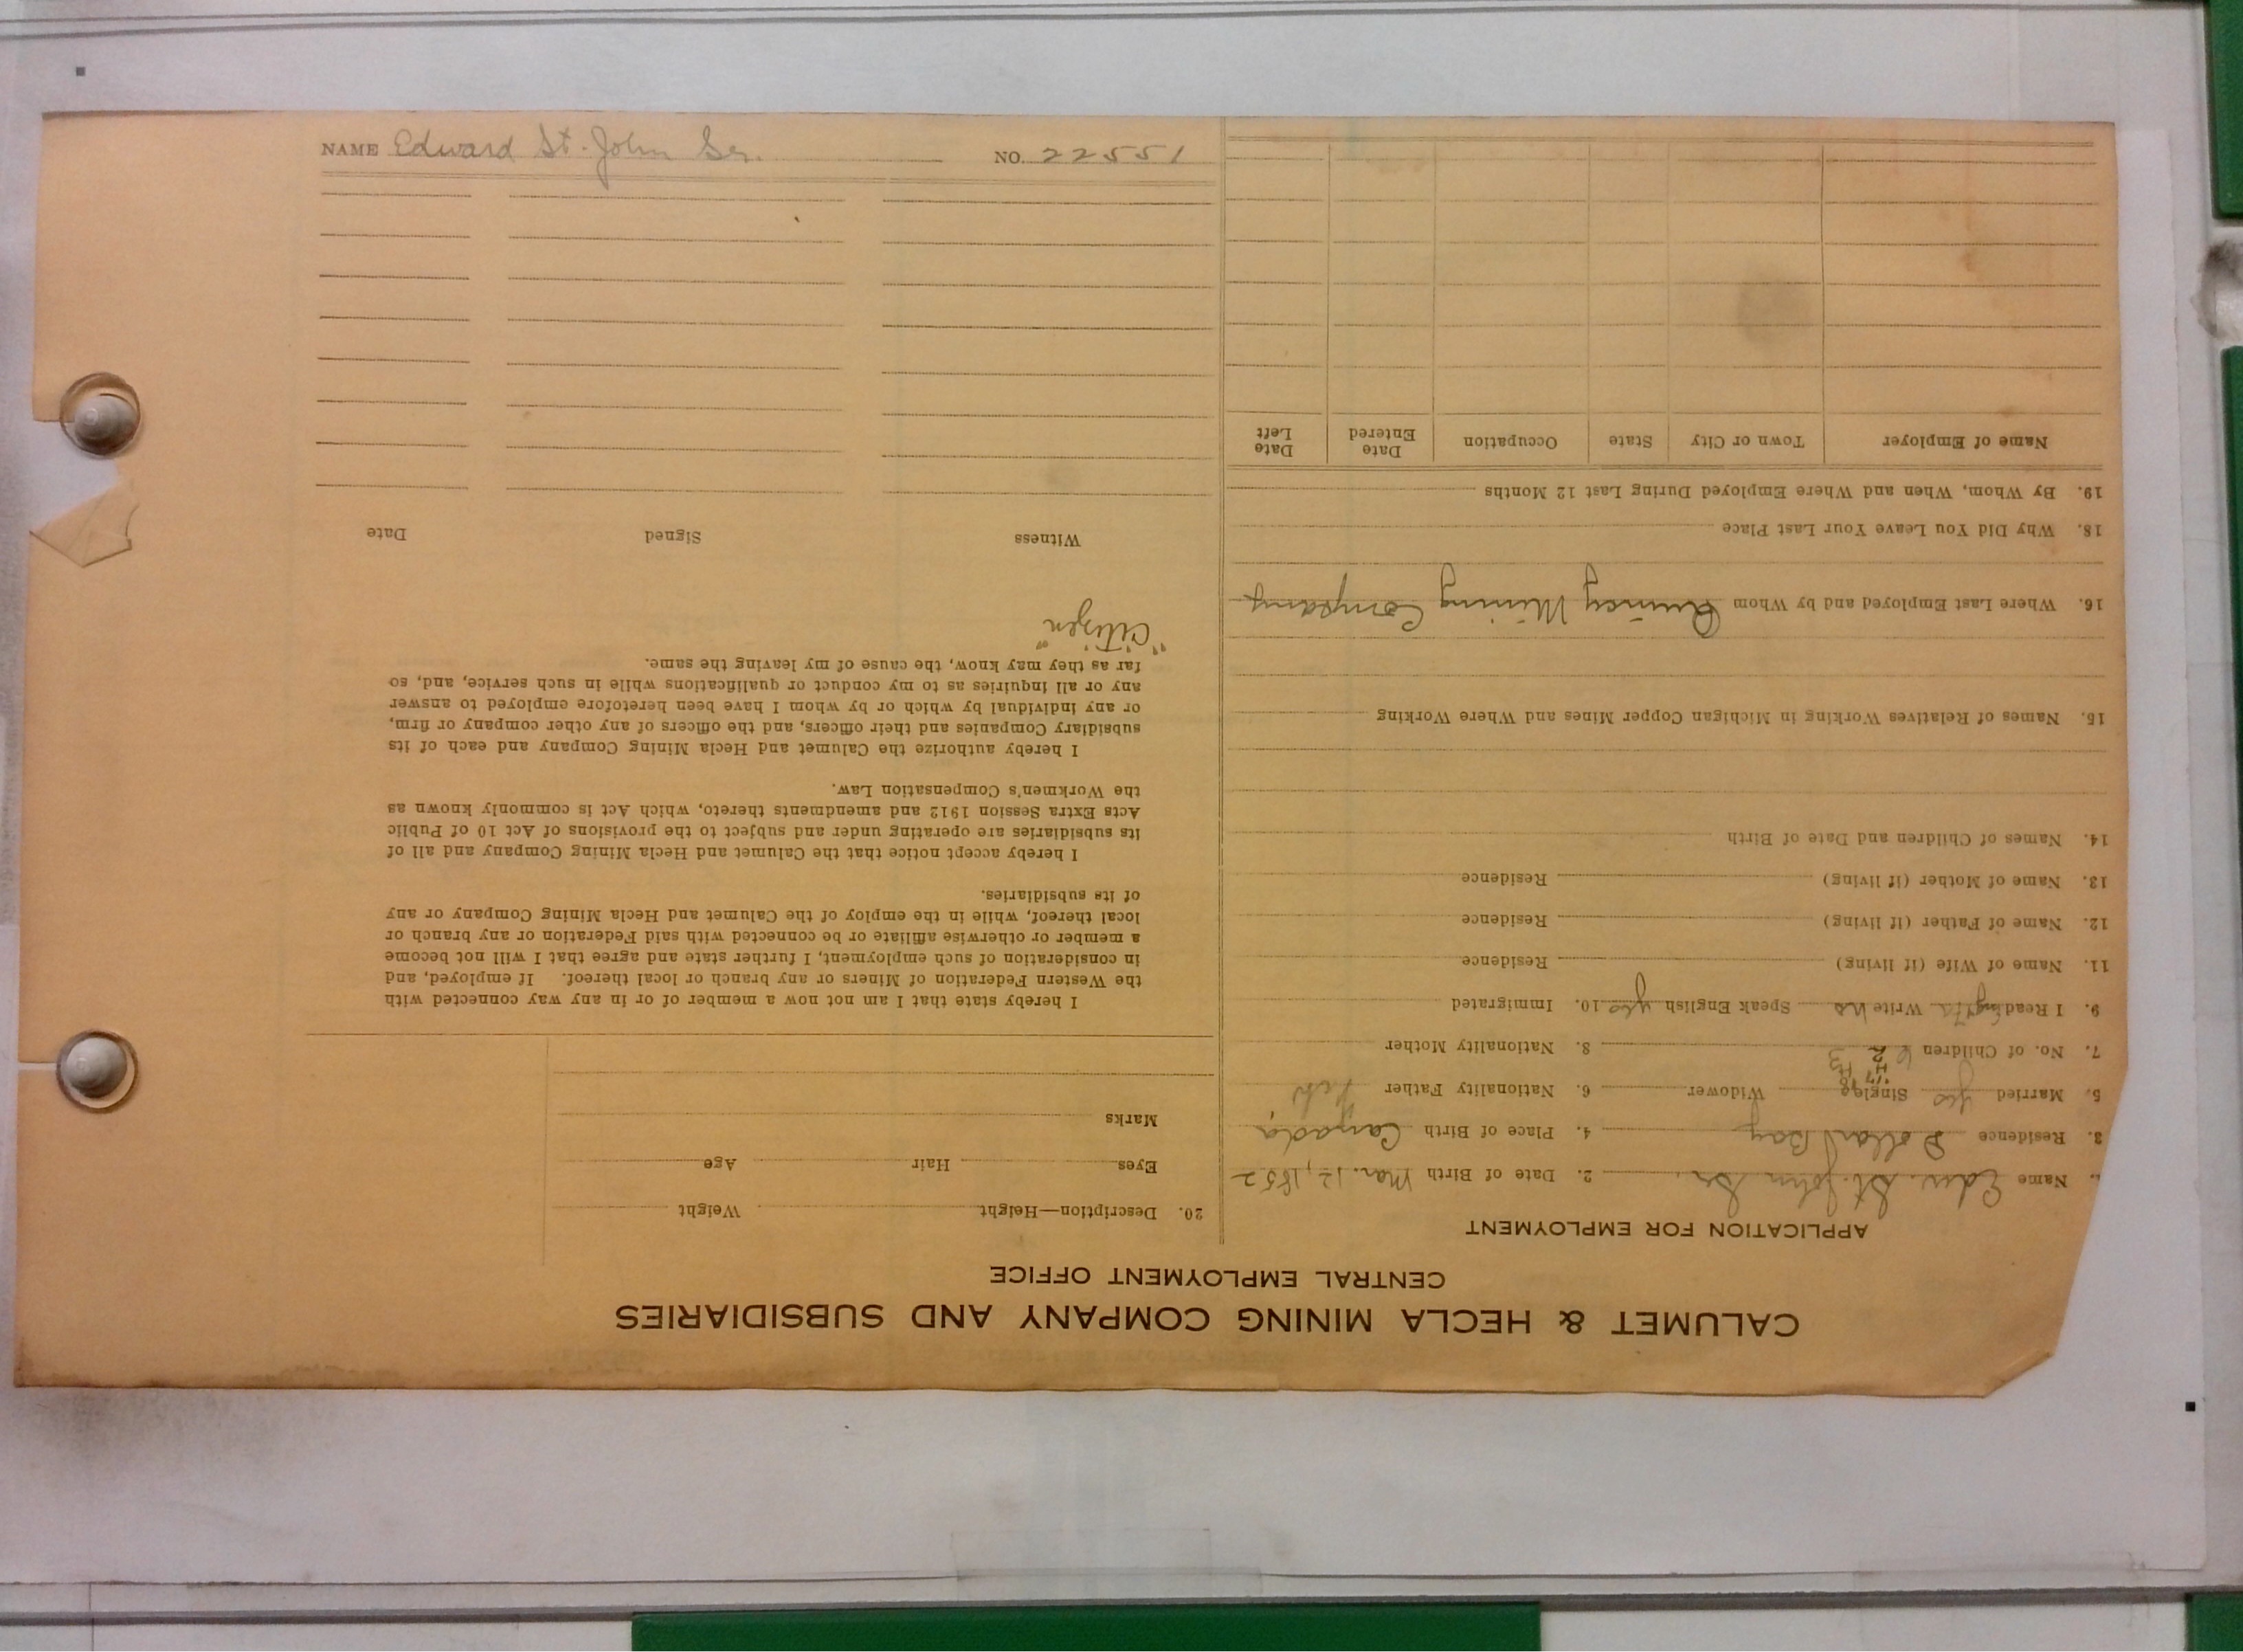 CALUMET & HECLA MINING COMPANY AND SUBSIDIARIES
CENTRAL EMPLOYMENT OFFICE
APPLICATION FOR EMPLOYMENT
Name Edw. St. John Sr. 2. Date of Birth Mar. 12, 1852
3. Residence Dollar Bay 4. Place of Birth Canada
5. Married yes Single Widower 6. Nationality Father
7. No. of Children 6 8. Nationality Mother
9. I Read Write No Speak English yes 10. Immigrated
11. Name of Wife (if living) Residence
12. Name of Father (if living) Residence
13. Name of Mother (if living) Residence
14. Names of Children and Date of Birth
15. Names of Relatives Working in Michigan Copper Mines and Where Working
16. Where Last Employed and by Whom Quincy Mining Company
18. Why Did You Leave Your Last Place
19. By Whom, When and Where Employed During Last 12 Months
Name of Employer Town or City State Occupation Date Entered Date Left
20. Description—Height Weight
Eyes Hair Age
Marks
I hereby state that I am not now a member of or in any way connected with
the Western Federation of Miners or any branch or local thereof. If employed, and
in consideration of such employment, I further state and agree that I will not become
a member or otherwise affiliate or be connected with said Federation or any branch or
local thereof, while in the employ of the Calumet and Hecla Mining Company or any
of its subsidiaries.
I hereby accept notice that the Calumet and Hecla Mining Company and all of
its subsidiaries are operating under and subject to the provisions of Act 10 of Public
Acts Extra Session 1912 and amendments thereto, which Act is commonly known as
the Workmen's Compensation Law.
I hereby authorize the Calumet and Hecla Mining Company and each of its
subsidiary Companies and their officers, and the officers of any other company or firm,
or any individual by which or by whom I have been heretofore employed to answer
any or all inquiries as to my conduct or qualifications while in such service, and, so
far as they may know, the cause of my leaving the same.
"Citizen"
Witness Signed Date
NAME Edward St. John Sr. NO. 22551